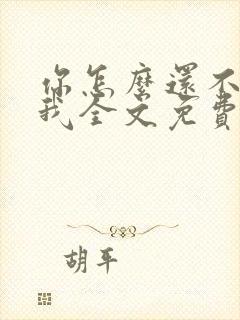 你怎麼還不
我全文免費
胡平